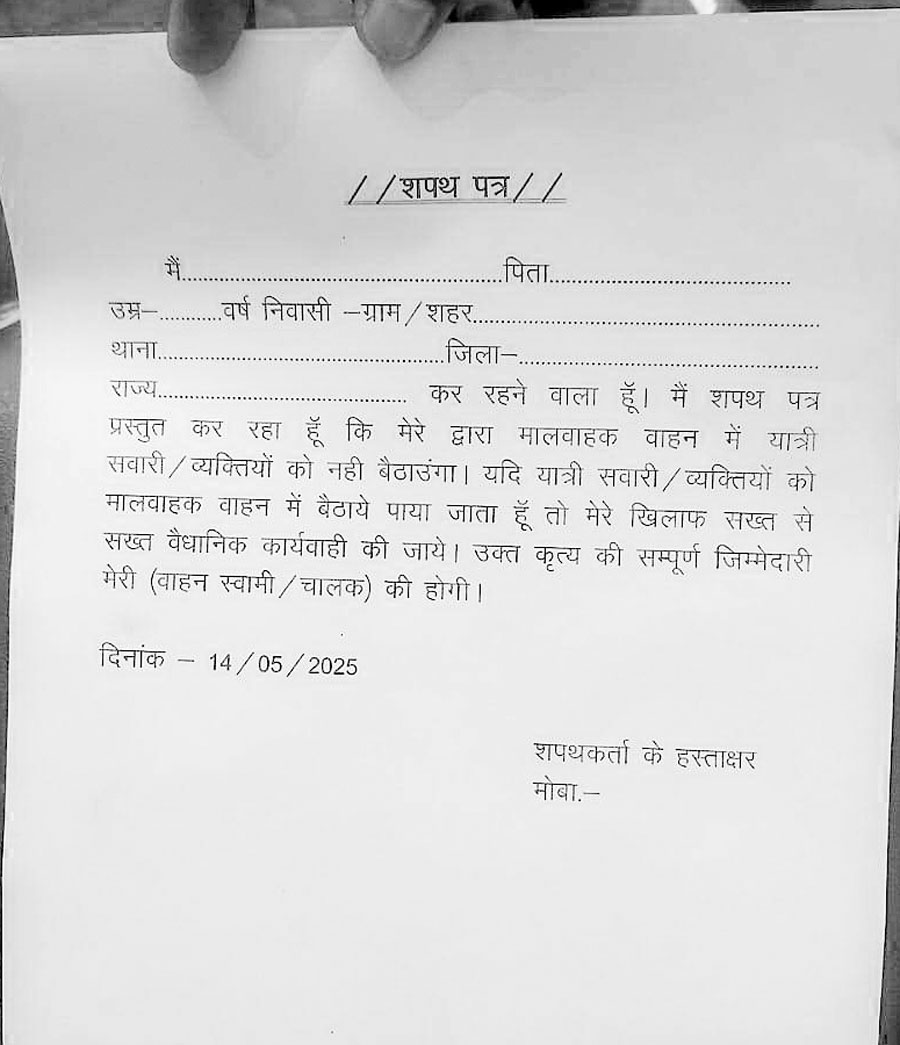 //शपथ पत्र//
मैं.................................................पिता.....................................
उम्र–..........वर्ष निवासी –ग्राम/शहर.....................................................
थाना............................................जिला–..............................................
राज्य...................................... कर रहने वाला हूॅ। मैं शपथ पत्र
प्रस्तुत कर रहा हूॅ कि मेरे द्वारा मालवाहक वाहन में यात्री
सवारी/व्यक्तियों को नही बैठाउंगा। यदि यात्री सवारी/व्यक्तियों को
मालवाहक वाहन में बैठाये पाया जाता हूॅ तो मेरे खिलाफ सख्त से
सख्त वैधानिक कार्यवाही की जाये। उक्त कृत्य की सम्पूर्ण जिम्मेदारी
मेरी (वाहन स्वामी/चालक) की होगी।
दिनांक – 14/05/2025
शपथकर्ता के हस्ताक्षर
मोबा.–